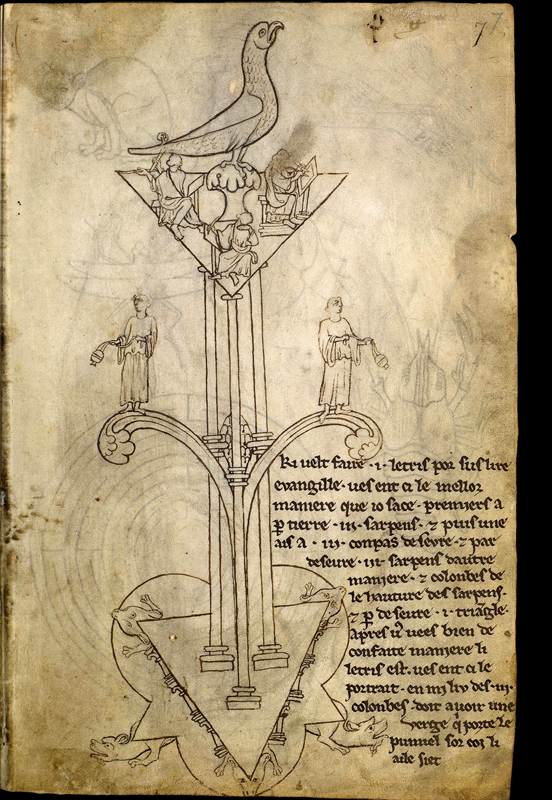 77
Ki velt faire ·i· letris por sus lire
evangille · ves ent ci le mellor
maniere que io sace · premiers a
p tierre · iii · sarpens · ⁊ puis une
ais a · iii · conpas deseure · ⁊ par
deseure · iii · sarpens dautre
maniere · ⁊ colonbes de
le hauture des sarpens ·
⁊ p deseure · i · triangle ·
apres u vees bien de
confaite maniere li
letris est · ves ent ci le
portrait · en mi liu des · iii ·
colonbes · doit avoir une
verge q porte le
pumiel sor coi li
aile siet